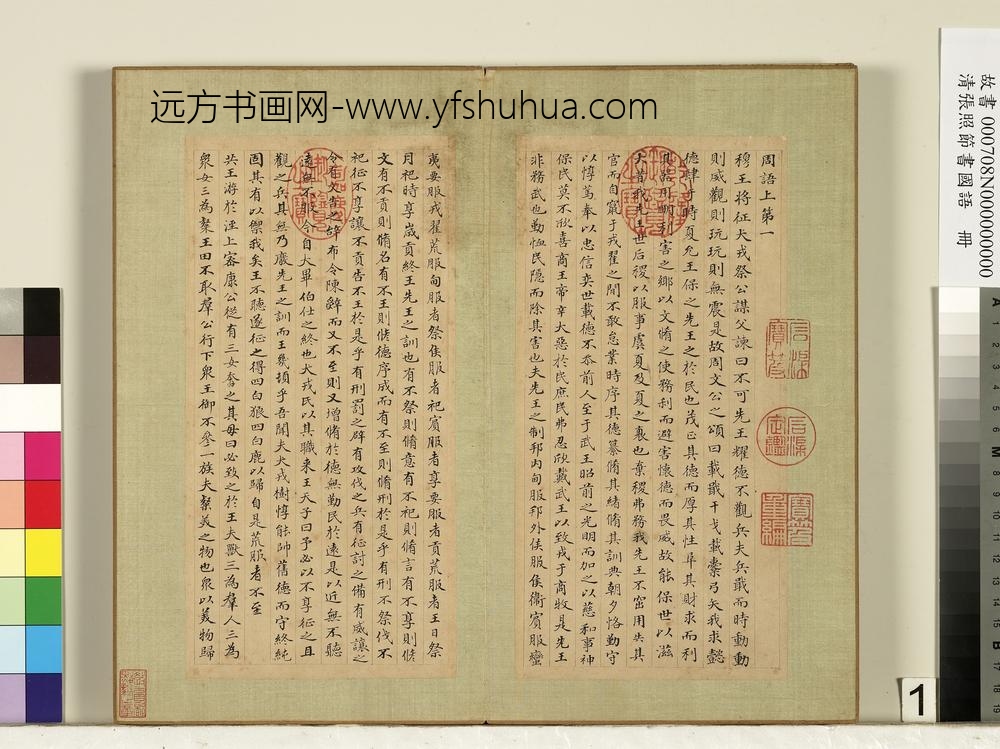 远方书画网-www.yfshuhua.com
故書 000708N000000000
清張照節書國語 冊
周語上第一
穆王將征犬戎祭公謀父諫曰不可先王耀德不觀兵夫兵戢而時動動
則威觀則玩玩則無震是故周文公之頌曰載戢干戈載櫜弓矢我求懿
德肆于時夏允王保之先王之於民也茂正其德而厚其性阜其財求而利
其器用明利害之鄉以文脩之使務利而避害懷德而畏威故能保世以滋
大昔我先王世后稷以服事虞夏及夏之衰也棄稷弗務我先王不窋用失其
官而自竄于戎翟之間不敢怠業時序其德纂脩其緒脩其訓典朝夕恪勤守
以惇篤奉以忠信奕世載德不忝前人至于武王昭前之光明而加之以慈和事神
保民莫不欣喜商王帝辛大惡於民庶民弗忍欣戴武王以致戎于商牧是先王
非務武也勤恤民隱而除其害也夫先王之制邦內甸服邦外侯服侯衛賓服蠻
夷要服戎翟荒服甸服者祭侯服者祀賓服者享要服者貢荒服者王日祭
月祀時享歲貢終王先王之訓也有不祭則脩意有不祀則脩言有不享則脩
文有不貢則脩名有不王則脩德序成而有不至則脩刑於是乎有刑不祭伐不
祀征不享讓不貢告不王於是乎有刑罰之辟有攻伐之兵有征討之備有威讓之
令有文告之辭布令陳辭而又不至則又增脩於德無勤民於遠是以近無不聽
遠無不服今自大畢伯仕之終也犬戎氏以其職來王天子曰予必以不享征之且
觀之兵其無乃廢先王之訓而王幾頓乎吾聞夫犬戎樹惇能帥舊德而守終純
固其有以禦我矣王不聽遂征之得四白狼四白鹿以歸自是荒服者不至
共王游於涇上密康公從有三女奔之其母曰必致之於王夫獸三為羣人三為
衆女三為粲王田不取羣公行下衆王御不參一族夫粲美之物也衆以美物歸
石渠寶笈
石渠定鑑
寶笈重編
1